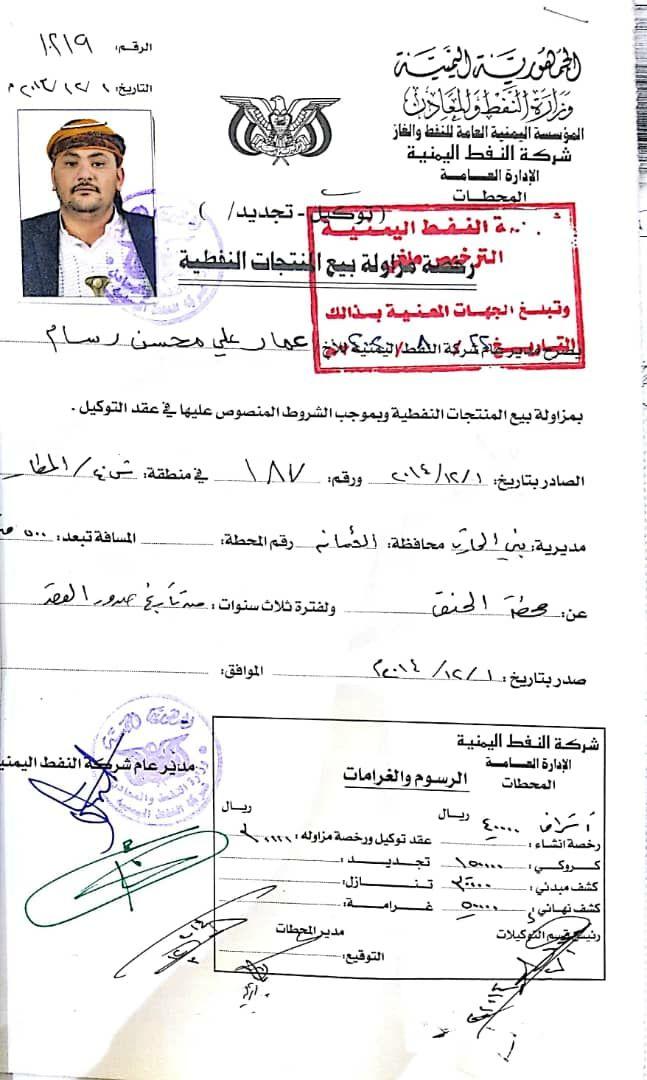 الجمهورية اليمنية
وزارة النفط والمعادن
المؤسسة اليمنية العامة للنفط والغاز
شركة النفط اليمنية
الإدارة العـــامـة
المحطات
الرقم: ١٠٢١٩
التاريخ: ١/١٢/ م
(توكيل - تجديد/ )
رخصة مزاولة بيع المنتجات النفطية
ة النفط اليمنية
الترخيص
وتبلغ الجهات المعنية بذالك
التاريخ
يصرح مدير عام شركة النفط اليمنية للأخ عمار علي محسن رسام
بمزاولة بيع المنتجات النفطية وبموجب الشروط المنصوص عليها في عقد التوكيل .
الصادر بتاريخ: ٢٠١٤/١٢/١ ورقم: ١٨٧ في منطقة: / المطار
مديرية: بني الحارث محافظة: الأمانه رقم المحطة: المسافة تبعد: ٥٠٠
عن: محطة ولفترة ثلاث سنوات: من تأريخ صدور العقد
صدر بتاريخ: ١/١٢/٢٠١٤م الموافق:
مدير عام شركة النفط اليمنية
شركة النفط اليمنية
الإدارة العـــامـة
المحطات
الرسوم والغرامات
ريال ريال
رخصة انشاء: عقد توكيل ورخصة مزاوله:
كـروكـي: تجـديـد:
كشف مبدئي: تنـازل:
كشف نهائي: غـرامـة:
رئيس قسم التوكيلات مدير المحطات
التوقيع: